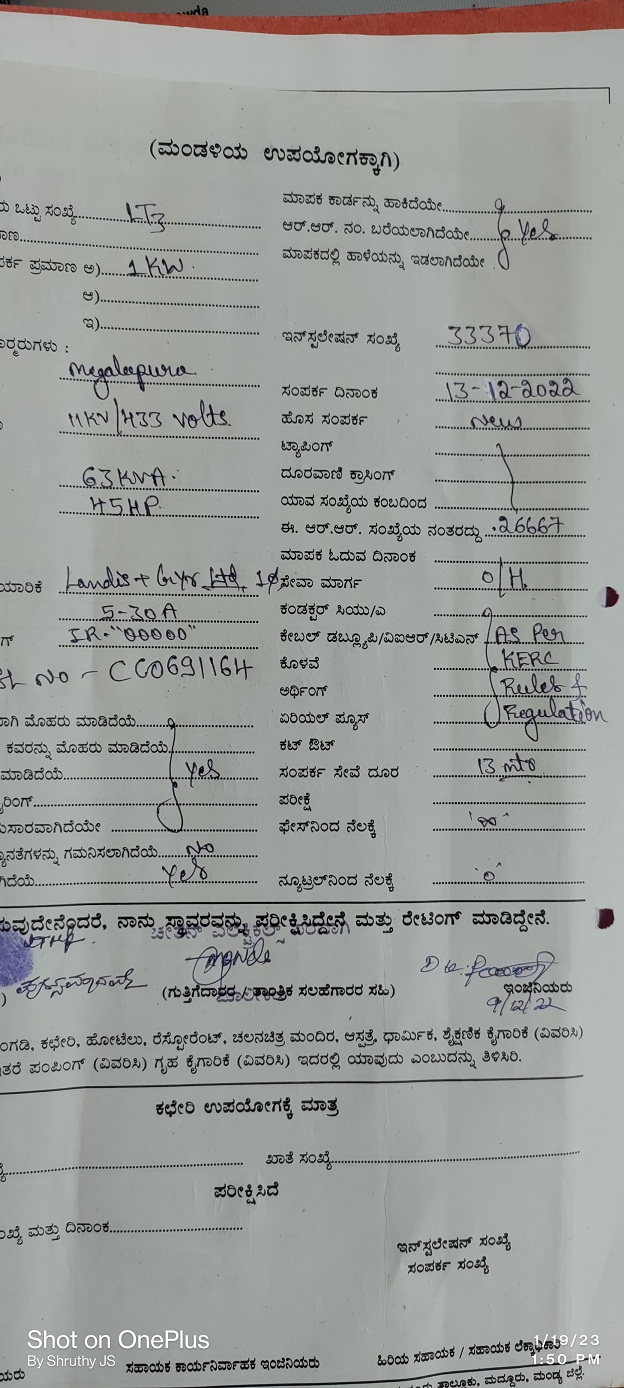 (ಮಂಡಳಿಯ ಉಪಯೋಗಕ್ಕಾಗಿ)
ಒಟ್ಟು ಸಂಖ್ಯೆ LT3
ಮಾಪಕ ಕಾರ್ಡನ್ನು ಹಾಕಿದೆಯೇ
ಆರ್.ಆರ್. ನಂ. ಬರೆಯಲಾಗಿದೆಯೇ Yes
ಪ್ರಮಾಣ ಅ) 1KW
ಮಾಪಕದಲ್ಲಿ ಹಾಳೆಯನ್ನು ಇಡಲಾಗಿದೆಯೇ
ಆ)
ಇ)
ಇನ್‌ಸ್ಟಲೇಷನ್ ಸಂಖ್ಯೆ 33370
Megalapura
ಸಂಪರ್ಕ ದಿನಾಂಕ 13-12-2022
11KV/433 volts.
ಹೊಸ ಸಂಪರ್ಕ New
ಟ್ಯಾಪಿಂಗ್
63KVA.
ದೂರವಾಣಿ ಕ್ರಾಸಿಂಗ್
45HP
ಯಾವ ಸಂಖ್ಯೆಯ ಕಂಬದಿಂದ
ಈ. ಆರ್.ಆರ್. ಸಂಖ್ಯೆಯ ನಂತರದ್ದು 26667
ಮಾಪಕ ಓದುವ ದಿನಾಂಕ
Landis + Gyr Ltd, 1ø
ಸೇವಾ ಮಾರ್ಗ O/H
5-30A
ಕಂಡಕ್ಟರ್ ಸಿಯು/ಎ
IR-"00000"
ಕೇಬಲ್ ಡಬ್ಲ್ಯೂಪಿ/ವಿಐಆರ್/ಸಿಟಿಎನ್ As Per
SL NO - CC0691164
ಕೊಳವೆ KERC
ಅರ್ಥಿಂಗ್ Rules &
ಮೊಹರು ಮಾಡಿದೆಯೆ
ಏರಿಯಲ್ ಫ್ಯೂಸ್ Regulation
ಕವರನ್ನು ಮೊಹರು ಮಾಡಿದೆಯೆ
ಕಟ್ ಔಟ್
ಮಾಡಿದೆಯೆ Yes
ಸಂಪರ್ಕ ಸೇವೆ ದೂರ 13 mts
ಪರೀಕ್ಷೆ
ಫೇಸ್‌ನಿಂದ ನೆಲಕ್ಕೆ "∞"
ಗಮನಿಸಲಾಗಿದೆಯೆ No
Yes
ನ್ಯೂಟ್ರಲ್‌ನಿಂದ ನೆಲಕ್ಕೆ "0"
ನಾನು ಸ್ಥಾವರವನ್ನು ಪರೀಕ್ಷಿಸಿದ್ದೇನೆ ಮತ್ತು ರೇಟಿಂಗ್ ಮಾಡಿದ್ದೇನೆ.
(ಗುತ್ತಿಗೆದಾರರ / ತಾಂತ್ರಿಕ ಸಲಹೆಗಾರರ ಸಹಿ)
ಇಂಜಿನಿಯರು
9/12/22
ಕಛೇರಿ, ಹೋಟೆಲು, ರೆಸ್ಟೋರೆಂಟ್, ಚಲನಚಿತ್ರ ಮಂದಿರ, ಆಸ್ಪತ್ರೆ, ಧಾರ್ಮಿಕ, ಶೈಕ್ಷಣಿಕ ಕೈಗಾರಿಕೆ (ವಿವರಿಸಿ)
ಪಂಪಿಂಗ್ (ವಿವರಿಸಿ) ಗೃಹ ಕೈಗಾರಿಕೆ (ವಿವರಿಸಿ) ಇದರಲ್ಲಿ ಯಾವುದು ಎಂಬುದನ್ನು ತಿಳಿಸಿರಿ.
ಕಛೇರಿ ಉಪಯೋಗಕ್ಕೆ ಮಾತ್ರ
ಖಾತೆ ಸಂಖ್ಯೆ
ಪರೀಕ್ಷಿಸಿದೆ
ಮತ್ತು ದಿನಾಂಕ
ಇನ್‌ಸ್ಟಲೇಷನ್ ಸಂಖ್ಯೆ
ಸಂಪರ್ಕ ಸಂಖ್ಯೆ
ಸಹಾಯಕ ಕಾರ್ಯನಿರ್ವಾಹಕ ಇಂಜಿನಿಯರು
ಹಿರಿಯ ಸಹಾಯಕ / ಸಹಾಯಕ ಲೆಕ್ಕಾಧಿಕಾರಿ
ತಾಲ್ಲೂಕು, ಮದ್ದೂರು, ಮಂಡ್ಯ ಜಿಲ್ಲೆ.
Shot on OnePlus
By Shruthy JS
1/19/23
1:50 PM